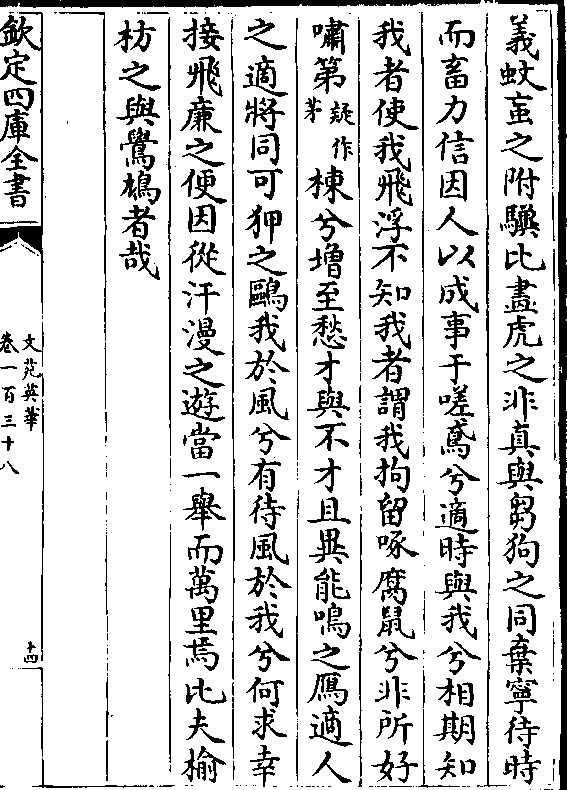 義蚊䖟之附驥比畫虎之非真與芻狗之同棄寧待時
而畜力信因人以成事于嗟鳶兮適時與我兮相期知
我者使我飛浮不知我者謂我拘留啄腐鼠兮非所好
嘯第疑作茅棟兮增至愁才與不才且異能鳴之鴈適人
之適將同可狎之鷗我於風兮有待風於我兮何求幸
接飛廉之便因從汗漫之遊當一舉而萬里焉比夫榆
枋之與鷽鳩者哉
欽定四庫全書
文苑英華
卷一百三十八
十四